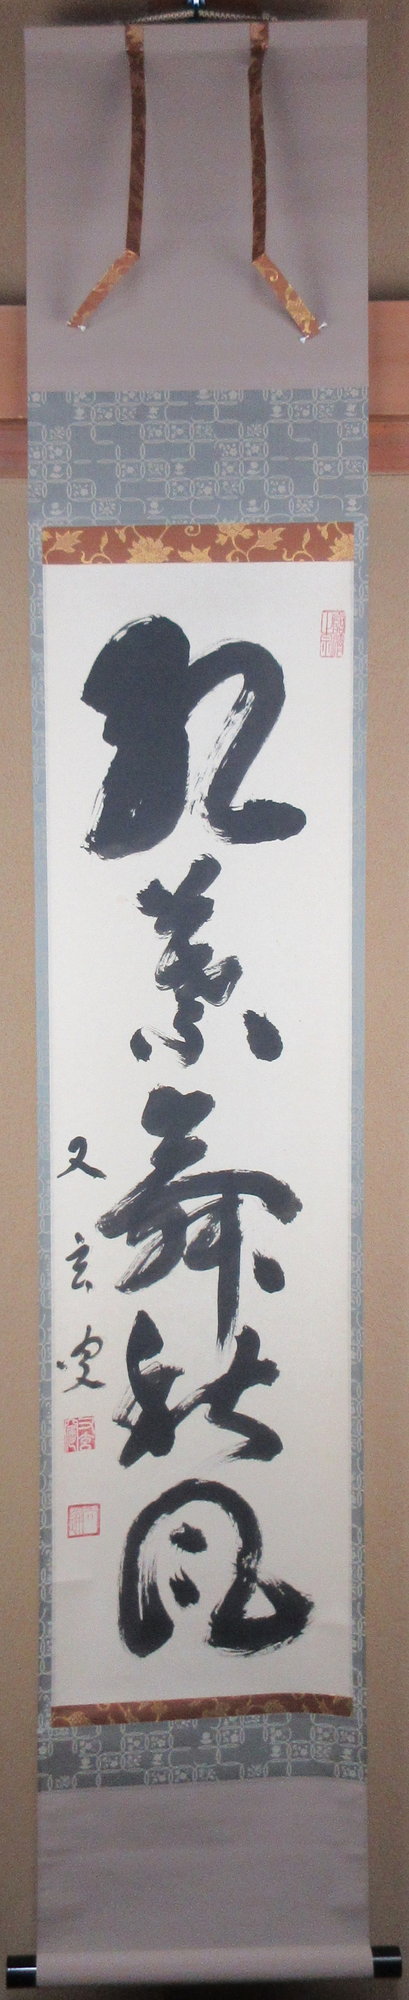 紅葉舞秋風
又玄窓